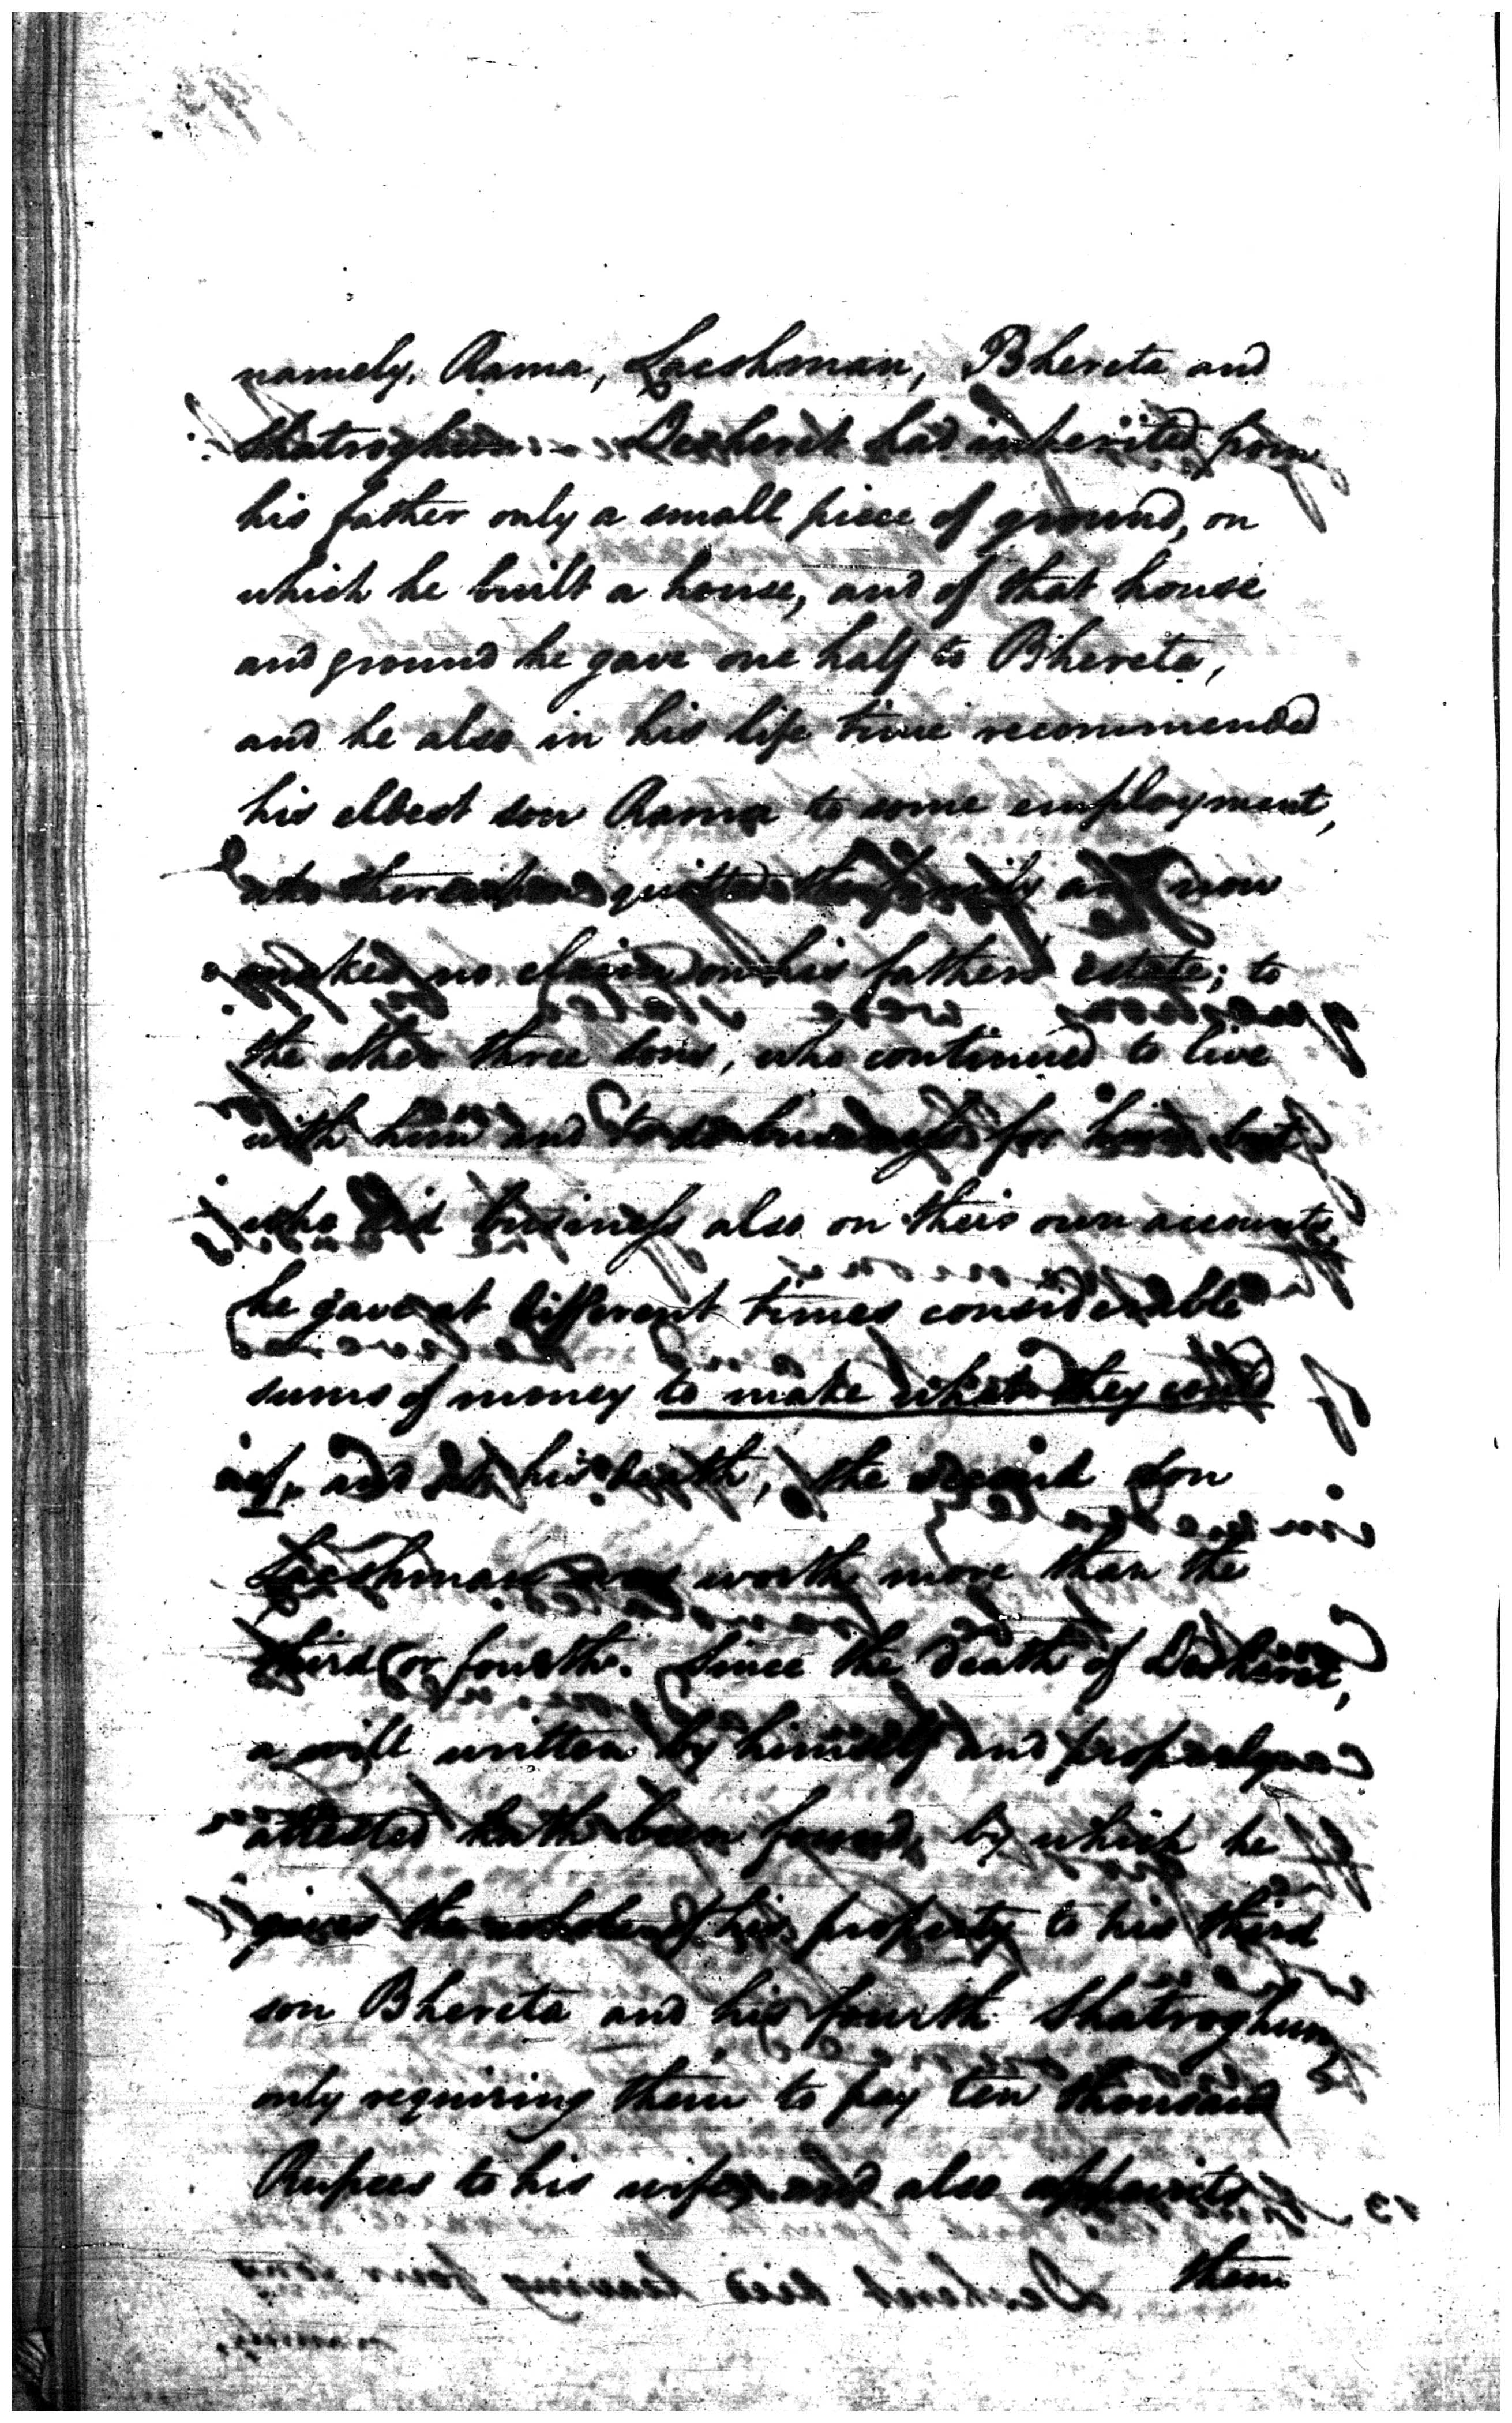 namely, Rama, Lacshman, Bhereta and
Shatroghun. Desheret had inherited from
his father only a small piece of ground, on
which he built a house, and of that house
and ground he gave one half to Bhereta,
and he also in his life time recommended
his eldest son Rama to some employment,
who thereupon quitted the family and now
makes no claim on his fathers estate; to
the other three sons, who continued to live
with him and to do business for him but
who did business also on their own accounts,
he gave at different times considerable
sums of money to make what they could
of, and at his death, the second son
Lacshman was worth more than the
third or fourth. Since the death of Desheret,
a will written by himself and properly
attested hath been found, by which he
gives the whole of his property to his third
son Bhereta and his fourth Shatroghun
only requiring them to pay ten thousand
Rupees to his wife, and also appoints
them